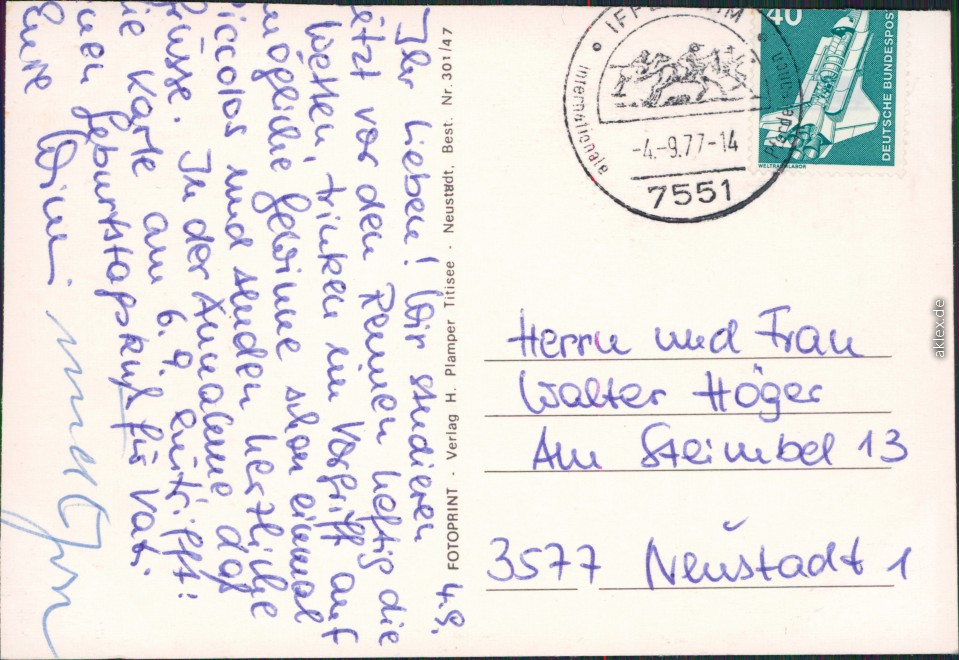 4.9.
Ihr Lieben! Wir studieren
jetzt vor den Rennen heftig die
Wetten, trinken im Vorgriff auf
mögliche Gewinne schon einmal
Piccolos und senden herzliche
Grüsse. In der Annahme daß
die Karte am 6.9. eintrifft:
einen Geburtstagskuß für Vati.
Eure
FOTOPRINT - Verlag H. Plamper Titisee - Neustadt. Best. Nr. 301/47
IFFEZHEIM
Internationale
-4.-9.77-14
7551
40
DEUTSCHE BUNDESPOS
WELTRAUMLABOR
Herrn und Frau
Walter Höger
Am Steimbel 13
3577 Neustadt 1
aklex.de